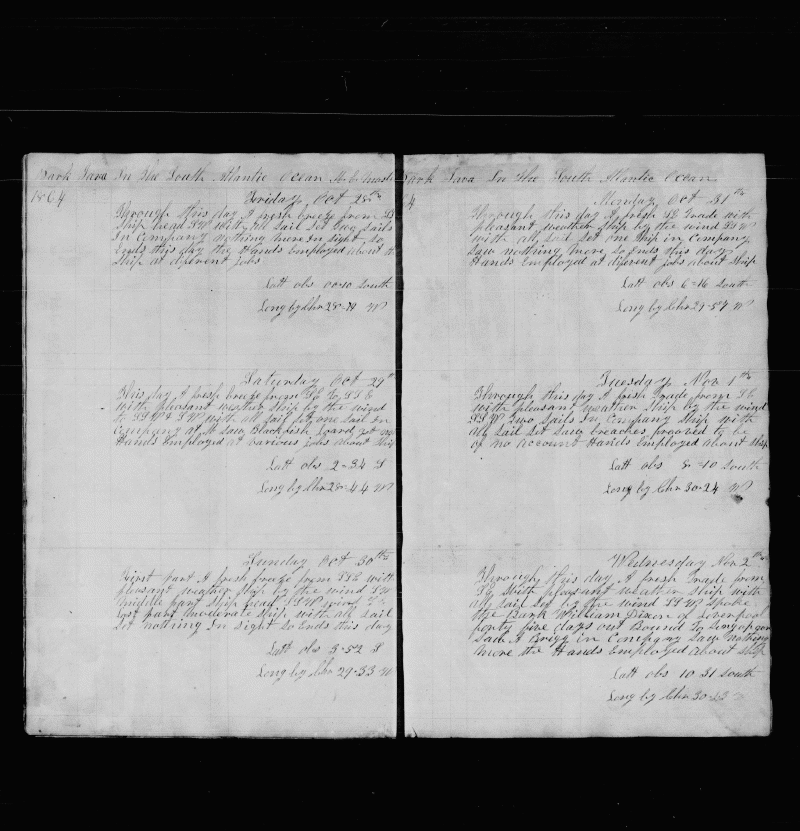 Bark Java In the South Atlantic Ocean
1864
Friday Oct 28th
Through this day A fresh breeze from SE
Ship head SW With all Sail Set two Sails
In Company nothing more In sight so
Ends this day the Hands Employed about the
Ship at diferent Jobs
Latt obs 00=10 South
Long by Chr 28= W
Saturday Oct 29th
This day A fresh breeze from SE To SSE
With pleasant weather Ship by the wind
SW With all Sail Set one Sail In
Company at M Saw Blackfish
Hands Employed at varivous Jobs about Ship
Latt obs 2=34 S
Long by Chr 28=44 W
Sunday Oct 30th
First part A fresh breeze from SSE with
pleasant weather Ship by the wind SW
middle part Ship head SSW wind
last part moderate Ship with all Sail
Set nothing In sight So Ends this day
Latt obs 3=52 S
Long by Chr 29=33 W
Bark Java In the South Atlantic Ocean
Monday Oct 31th
Through this day A fresh SE Trade with
pleasant weather Ship by the wind SSW
with all Sail Set one Ship in Company
Saw nothing more So Ends this day
Hands Employed at diferent Jobs about Ship
Latt obs 6=16 South
Long by Chr 29=54 W
Tuesday Nov 1th
Through this day A fresh Trade from SE
with pleasant weather Ship by the wind
SSW Two Sails In Company Ship with
all Sail Set Saw breaches prooved to be
of no Account Hands Employed about Ship
Latt obs 8=10 South
Long by Chr 30=24 W
Wednesday Nov 2th
Through this day A fresh Trade from
SE With pleasant weather Ship with
all Sail Set by the wind SSW Spoke
the Bark William Dixon of Liverpool
forty five days out Bound To Singapor
Sad A Brigg in Company Saw nothing
more the Hands Employed About Ship
Latt obs 10=31 South
Long by Chr